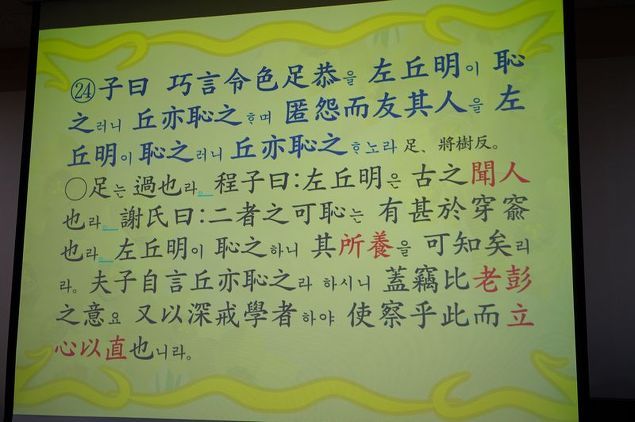 ㉔子曰 巧言令色足恭을 左丘明이 恥
之러니 丘亦恥之하며 匿怨而友其人을 左
丘明이 恥之러니 丘亦恥之하노라 足、將樹反。
○足는 過也라 程子曰:左丘明은 古之聞人
也라 謝氏曰:二者之可恥는 有甚於穿窬
也라 左丘明이 恥之하니 其所養을 可知矣리
라。夫子自言丘亦恥之라 하시니 蓋竊比老彭
之意요 又以深戒學者하야 使察乎此而立
心以直也니라。